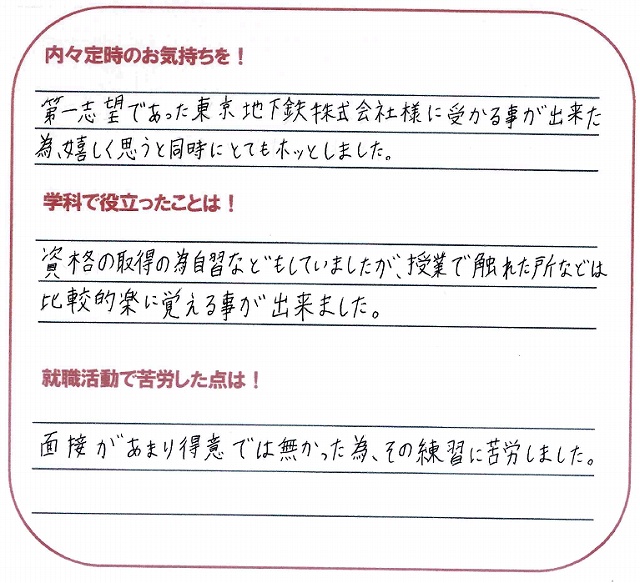 内々定時のお気持ちを！
第一志望であった東京地下鉄株式会社様に受かる事が出来た
為、嬉しく思うと同時にとてもホッとしました。
学科で役立ったことは！
資格の取得の為自習などもしていましたが、授業で触れた所などは
比較的楽に覚える事が出来ました。
就職活動で苦労した点は！
面接があまり得意では無かった為、その練習に苦労しました。